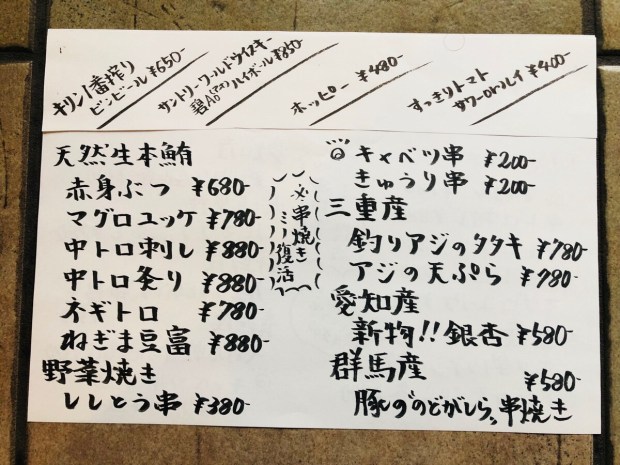 キリン一番搾り
ビンビール ¥650-
サントリーワールドウイスキー
碧Ao(アオ) ハイボール ¥850-
ホッピー ¥480-
すっきりトマト
サワーorハイ ¥400-
天然生本鮪
赤身ぶつ ¥680-
マグロユッケ ¥780-
中トロ刺し ¥880-
中トロ炙り ¥880-
ネギトロ ¥780-
ねぎま豆富 ¥880-
野菜焼き
ししとう串 ¥380-
串焼き
ミリ復活
◎キャベツ串 ¥200-
きゅうり串 ¥200-
三重産
釣りアジのタタキ ¥780-
アジの天ぷら ¥780-
愛知産
新物!!銀杏 ¥580-
群馬産
¥580-
豚の"のどがしら"串焼き